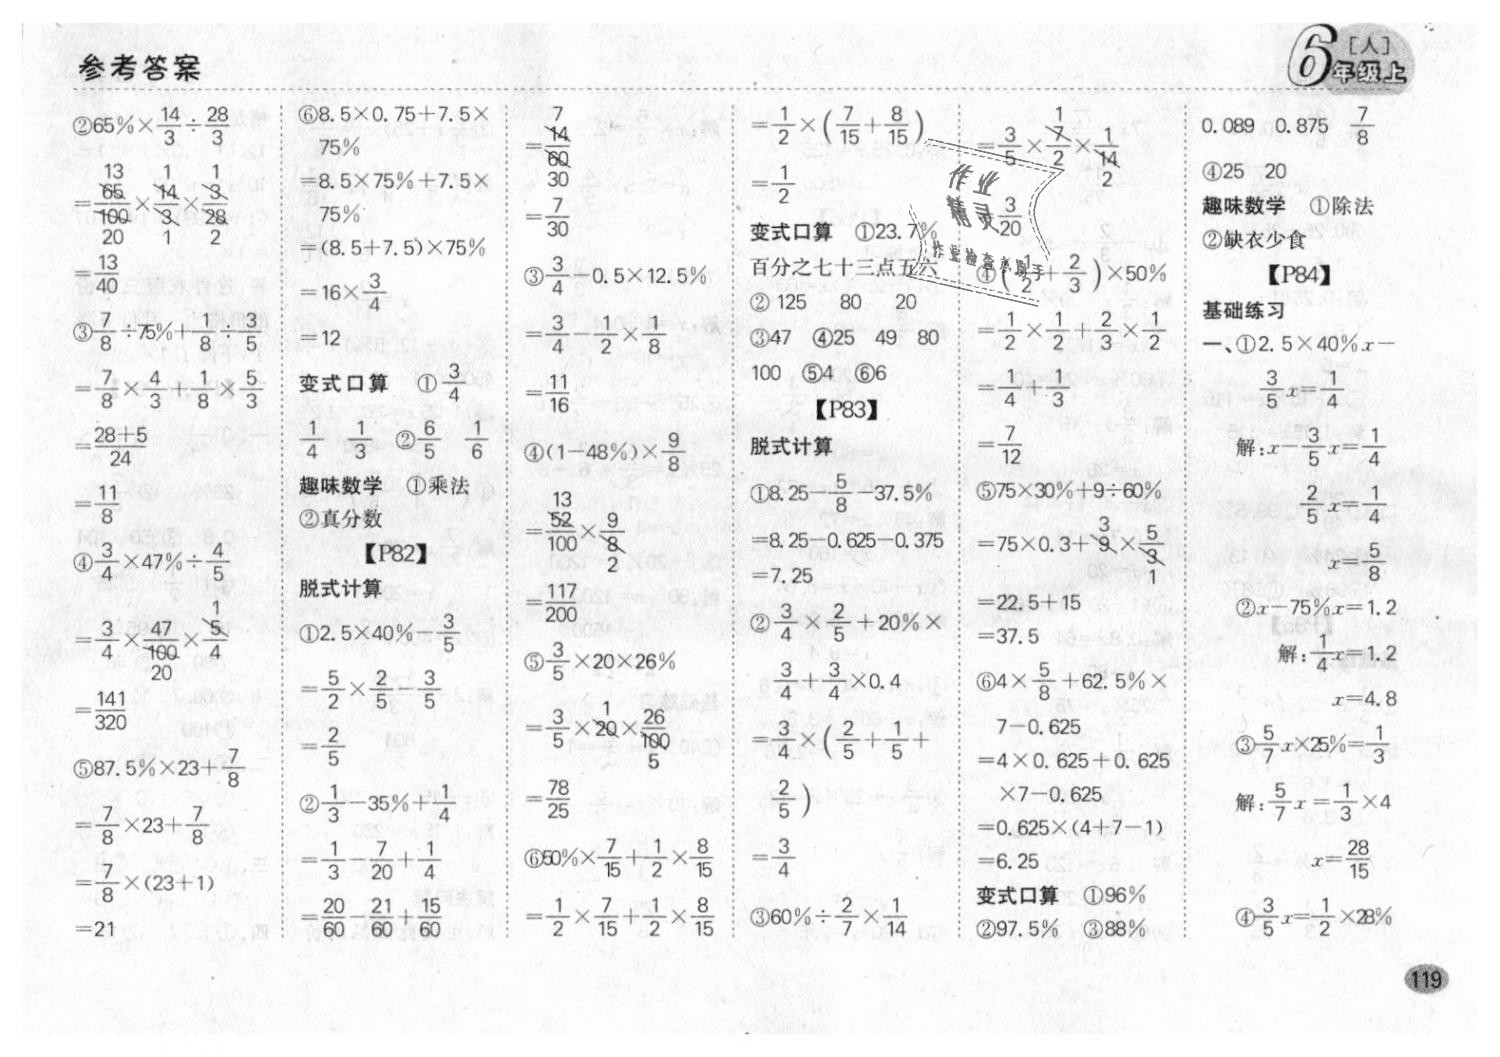 参考答案
6年级上[人]
②65%×14/3÷28/3
=65/100×14/3×3/28 (13, 20; 1, 1; 1, 2)
=13/40
③7/8÷75%+1/8÷3/5
=7/8×4/3+1/8×5/3
=28+5/24
=11/8
④3/4×47%÷4/5
=3/4×47/100×5/4 (20; 1)
=141/320
⑤87.5%×23+7/8
=7/8×23+7/8
=7/8×(23+1)
=21
⑥8.5×0.75+7.5×
75%
=8.5×75%+7.5×
75%
=(8.5+7.5)×75%
=16×3/4
=12
变式口算 ①3/4
1/4 1/3 ②6/5 1/6
趣味数学 ①乘法
②真分数
【P82】
脱式计算
①2.5×40%-3/5
=5/2×2/5-3/5
=2/5
②1/3-35%+1/4
=1/3-7/20+1/4
=20/60-21/60+15/60
=14/60 (7, 30)
=7/30
③3/4-0.5×12.5%
=3/4-1/2×1/8
=11/16
④(1-48%)×9/8
=52/100×9/8 (13; 2)
=117/200
⑤3/5×20×26%
=3/5×20×26/100 (1; 5)
=78/25
⑥50%×7/15+1/2×8/15
=1/2×7/15+1/2×8/15
=1/2×(7/15+8/15)
=1/2
变式口算 ①23.7%
百分之七十三点五六
②125 80 20
③47 ④25 49 80
100 ⑤4 ⑥6
【P83】
脱式计算
①8.25-5/8-37.5%
=8.25-0.625-0.375
=7.25
②3/4×2/5+20%×
3/4+3/4×0.4
=3/4×(2/5+1/5+
2/5)
=3/4
③60%÷2/7×1/14
=3/5×7/2×1/14 (1; 2)
=3/20
④(1/2+2/3)×50%
=1/2×1/2+2/3×1/2
=1/4+1/3
=7/12
⑤75×30%+9÷60%
=75×0.3+9×5/3 (3; 1)
=22.5+15
=37.5
⑥4×5/8+62.5%×
7-0.625
=4×0.625+0.625
×7-0.625
=0.625×(4+7-1)
=6.25
变式口算 ①96%
②97.5% ③88%
0.089 0.875 7/8
④25 20
趣味数学 ①除法
②缺衣少食
【P84】
基础练习
一、①2.5×40%x-
3/5x=1/4
解:x-3/5x=1/4
2/5x=1/4
x=5/8
②x-75%x=1.2
解:1/4x=1.2
x=4.8
③5/7x×25%=1/3
解:5/7x=1/3×4
x=28/15
④3/5x=1/2×28%
作业
精灵
作业检查小助手
119